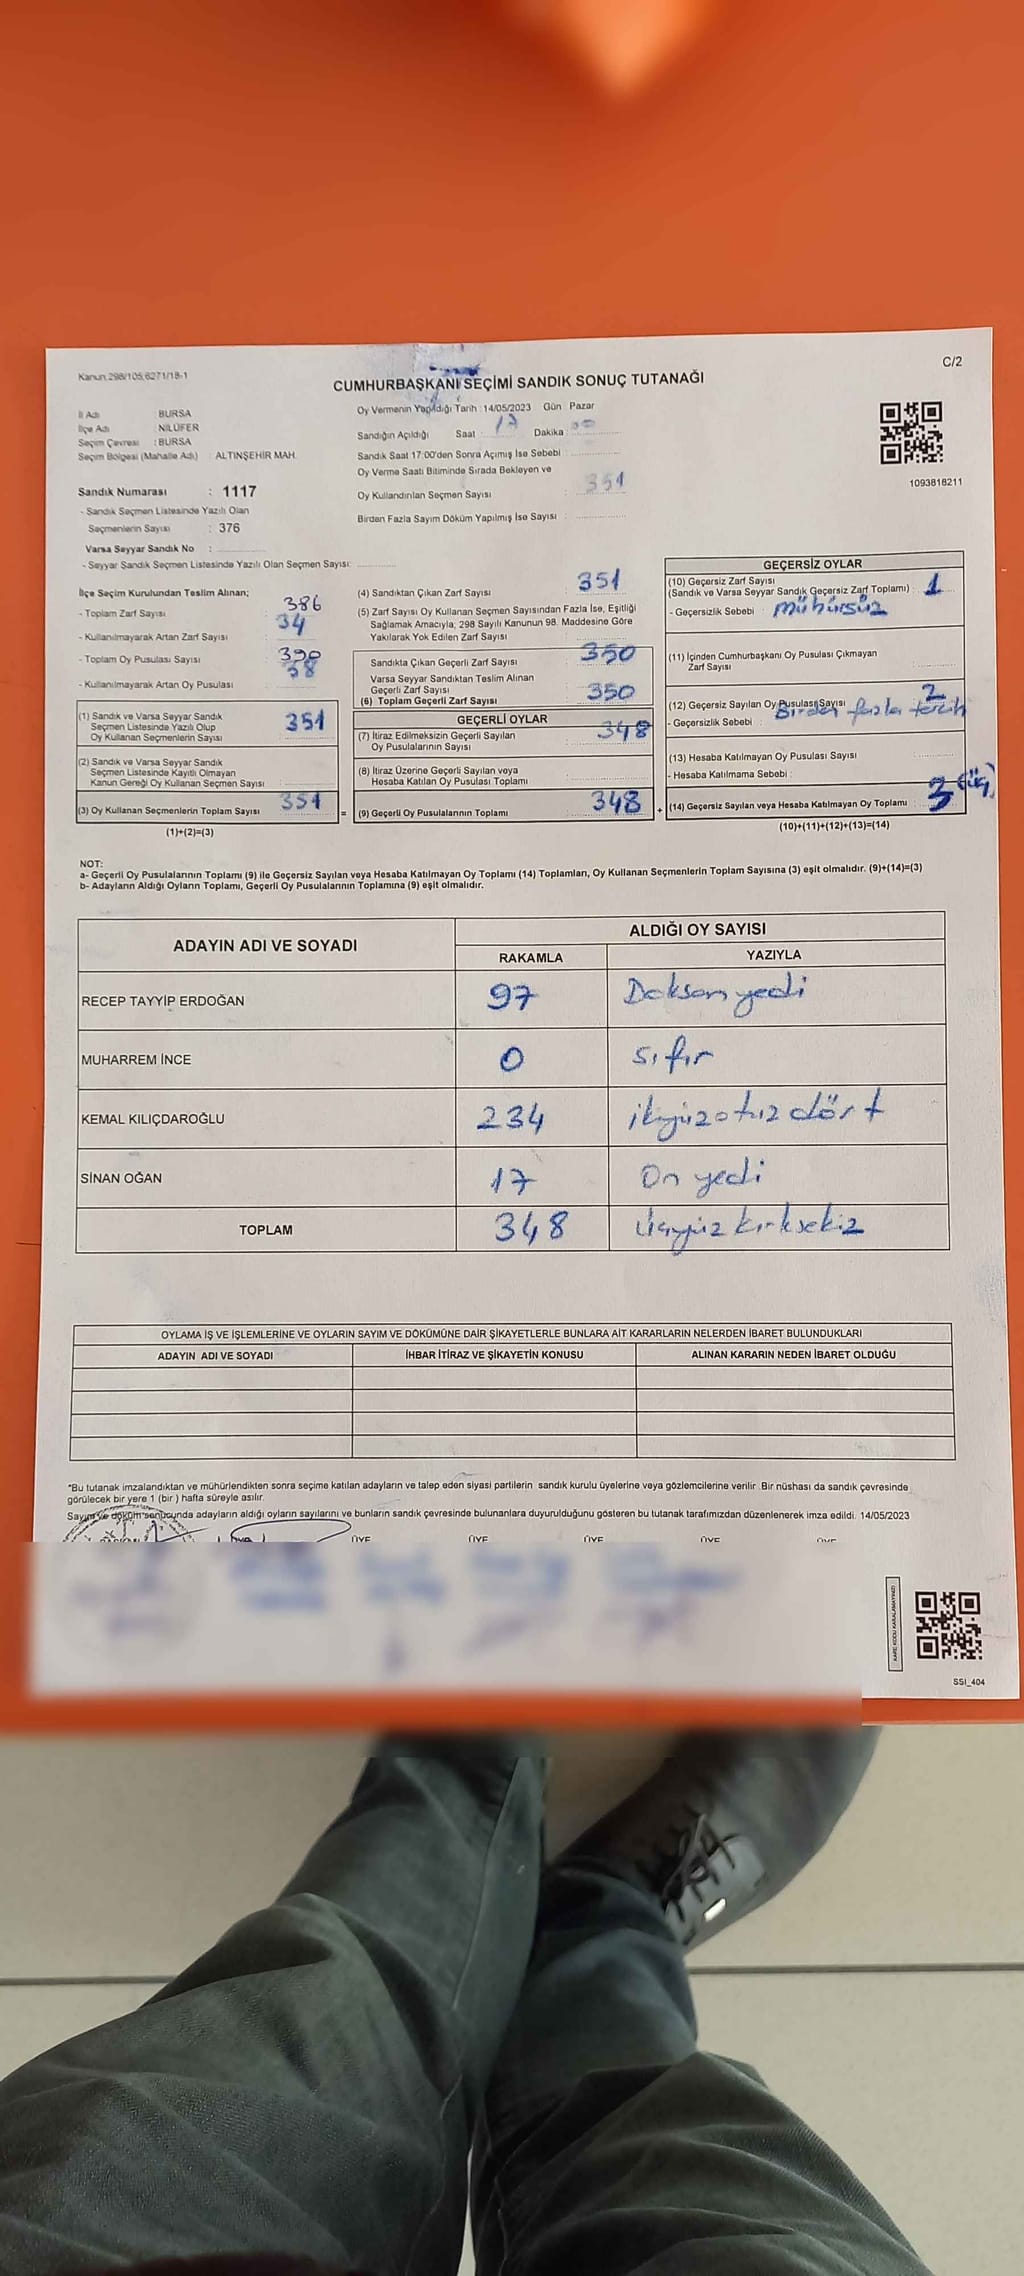 Kanun.298/105,6271/18-1
C/2
CUMHURBAŞKANI SEÇİMİ SANDIK SONUÇ TUTANAĞI
İl Adı : BURSA
İlçe Adı : NİLÜFER
Seçim Çevresi : BURSA
Seçim Bölgesi (Mahalle Adı) : ALTINŞEHİR MAH.
Sandık Numarası : 1117
- Sandık Seçmen Listesinde Yazılı Olan
Seçmenlerin Sayısı : 376
Varsa Seyyar Sandık No :
- Seyyar Sandık Seçmen Listesinde Yazılı Olan Seçmen Sayısı:
Oy Vermenin Yapıldığı Tarih :14/05/2023 Gün Pazar
Sandığın Açıldığı Saat : 17 Dakika : 00
Sandık Saat 17:00'den Sonra Açımış İse Sebebi :
Oy Verme Saati Bitiminde Sırada Bekleyen ve
Oy Kullandırılan Seçmen Sayısı : 351
Birden Fazla Sayım Döküm Yapılmış İse Sayısı :
1093818211
İlçe Seçim Kurulundan Teslim Alınan;
- Toplam Zarf Sayısı : 386
- Kullanılmayarak Artan Zarf Sayısı : 34
- Toplam Oy Pusulası Sayısı : 390
- Kullanılmayarak Artan Oy Pusulası : 38
(1) Sandık ve Varsa Seyyar Sandık
Seçmen Listesinde Yazılı Olup
Oy Kullanan Seçmenlerin Sayısı : 351
(2) Sandık ve Varsa Seyyar Sandık
Seçmen Listesinde Kayıtlı Olmayan
Kanun Gereği Oy Kullanan Seçmen Sayısı :
(3) Oy Kullanan Seçmenlerin Toplam Sayısı : 351
(1)+(2)=(3)
=
(4) Sandıktan Çıkan Zarf Sayısı : 351
(5) Zarf Sayısı Oy Kullanan Seçmen Sayısından Fazla İse, Eşitliği
Sağlamak Amacıyla; 298 Sayılı Kanunun 98. Maddesine Göre
Yakılarak Yok Edilen Zarf Sayısı :
Sandıkta Çıkan Geçerli Zarf Sayısı : 350
Varsa Seyyar Sandıktan Teslim Alınan
Geçerli Zarf Sayısı :
(6) Toplam Geçerli Zarf Sayısı : 350
GEÇERLİ OYLAR
(7) İtiraz Edilmeksizin Geçerli Sayılan
Oy Pusulalarının Sayısı : 348
(8) İtiraz Üzerine Geçerli Sayılan veya
Hesaba Katılan Oy Pusulası Toplamı :
(9) Geçerli Oy Pusulalarının Toplamı : 348
+
GEÇERSİZ OYLAR
(10) Geçersiz Zarf Sayısı
(Sandık ve Varsa Seyyar Sandık Geçersiz Zarf Toplamı) : 1
- Geçersizlik Sebebi : mühürsüz
(11) İçinden Cumhurbaşkanı Oy Pusulası Çıkmayan
Zarf Sayısı :
(12) Geçersiz Sayılan Oy Pusulası Sayısı : 2
- Geçersizlik Sebebi : Birden fazla tercih
(13) Hesaba Katılmayan Oy Pusulası Sayısı :
- Hesaba Katılmama Sebebi :
(14) Geçersiz Sayılan veya Hesaba Katılmayan Oy Toplamı : 3 (üç)
(10)+(11)+(12)+(13)=(14)
NOT:
a- Geçerli Oy Pusulalarının Toplamı (9) ile Geçersiz Sayılan veya Hesaba Katılmayan Oy Toplamı (14) Toplamları, Oy Kullanan Seçmenlerin Toplam Sayısına (3) eşit olmalıdır. (9)+(14)=(3)
b- Adayların Aldığı Oyların Toplamı, Geçerli Oy Pusulalarının Toplamına (9) eşit olmalıdır.
ADAYIN ADI VE SOYADI ALDIĞI OY SAYISI
RAKAMLA YAZIYLA
RECEP TAYYİP ERDOĞAN 97 Doksan yedi
MUHARREM İNCE 0 sıfır
KEMAL KILIÇDAROĞLU 234 ikiyüzotuz dört
SİNAN OĞAN 17 On yedi
TOPLAM 348 Üçyüz kırksekiz
OYLAMA İŞ VE İŞLEMLERİNE VE OYLARIN SAYIM VE DÖKÜMÜNE DAİR ŞİKAYETLERLE BUNLARA AİT KARARLARIN NELERDEN İBARET BULUNDUKLARI
ADAYIN ADI VE SOYADI İHBAR İTİRAZ VE ŞİKAYETİN KONUSU ALINAN KARARIN NEDEN İBARET OLDUĞU
*Bu tutanak imzalandıktan ve mühürlendikten sonra seçime katılan adayların ve talep eden siyasi partilerin sandık kurulu üyelerine veya gözlemcilerine verilir. Bir nüshası da sandık çevresinde
görülecek bir yere 1 (bir ) hafta süreyle asılır.
Sayım ve döküm sonucunda adayların aldığı oyların sayılarını ve bunların sandık çevresinde bulunanlara duyurulduğunu gösteren bu tutanak tarafımızdan düzenlenerek imza edildi. 14/05/2023
ÜYE ÜYE ÜYE ÜYE
SSI_404